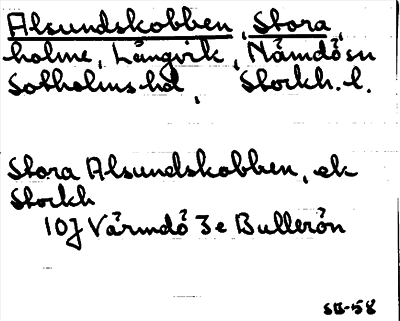 Alsundskobben, Stora,
holme, Långvik, Nämdö sn
Sotholms hd, Stockh. l.
Stora Alsundskobben, ek
Stockh
10J Värmdö 3e Bullerön
SB-58